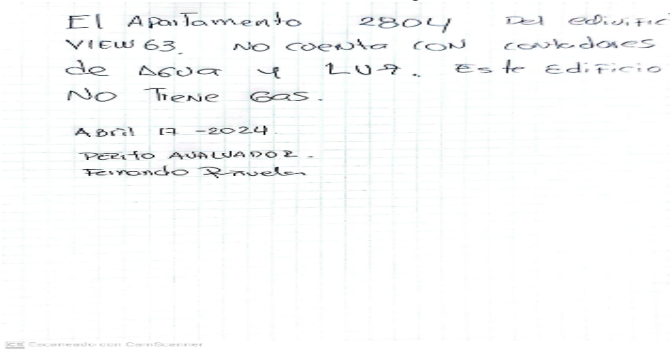 El Apartamento 2804 Del edivific
VIEW 63. NO cuenta CON contadores
de AGUA y LUZ. Este Edificio
NO Tiene Gas.
Abril 17 - 2024.
PERITO AVALUADOR.
Fernando
CS Escaneado con CamScanner